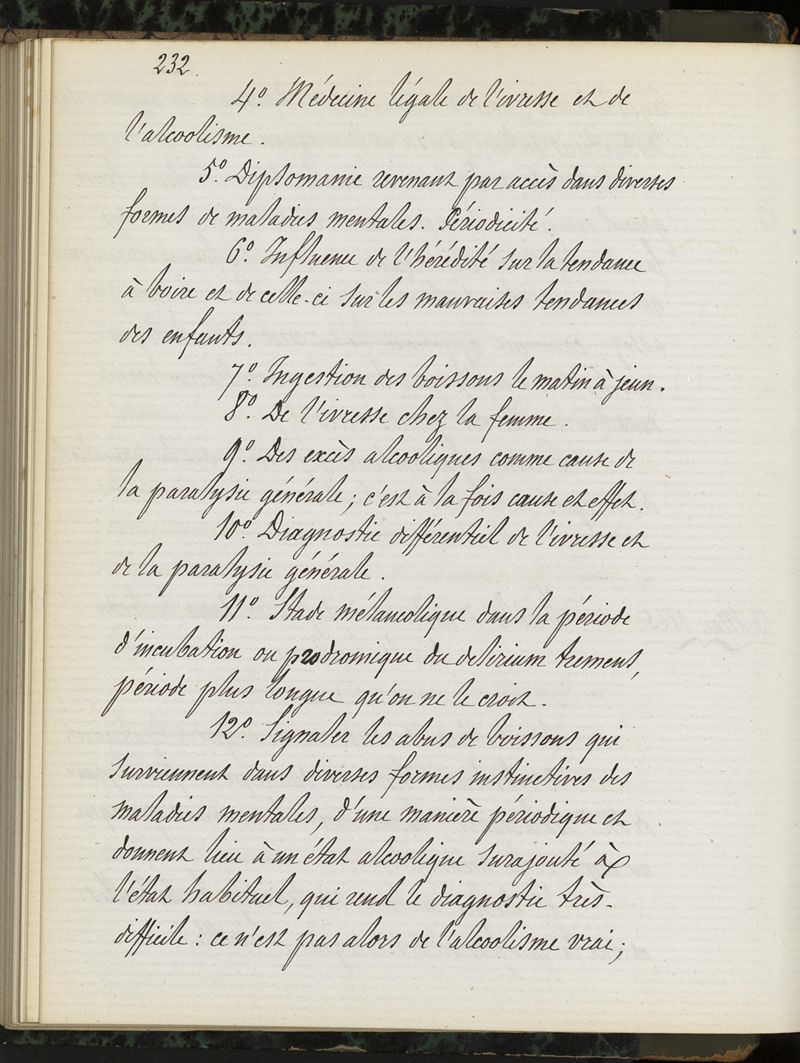 232.
4º. Médecine légale de l'ivresse et de
l'alcoolisme.
5º. Dipsomanie revenant par accès dans diverses
formes de maladies mentales. Périodicité.
6º. Influence de l'hérédité sur la tendance
à boire et de celle-ci sur les mauvaises tendances
des enfants.
7º. Ingestion des boissons le matin à jeun.
8º. De l'ivresse chez la femme.
9º. Des excès alcooliques comme cause de
la paralysie générale; c'est à la fois cause et effet.
10º. Diagnostic différentiel de l'ivresse et
de la paralysie générale.
11º. Stade mélancolique dans la période
d'incubation ou prodromique du delirium tremens,
période plus longue qu'on ne le croit.
12º. Signaler les abus de boissons qui
surviennent dans diverses formes instinctives des
maladies mentales, d'une manière périodique et
donnent lieu à un état alcoolique surajouté à
l'état habituel, qui rend le diagnostic très-
difficile : ce n'est pas alors de l'alcoolisme vrai;